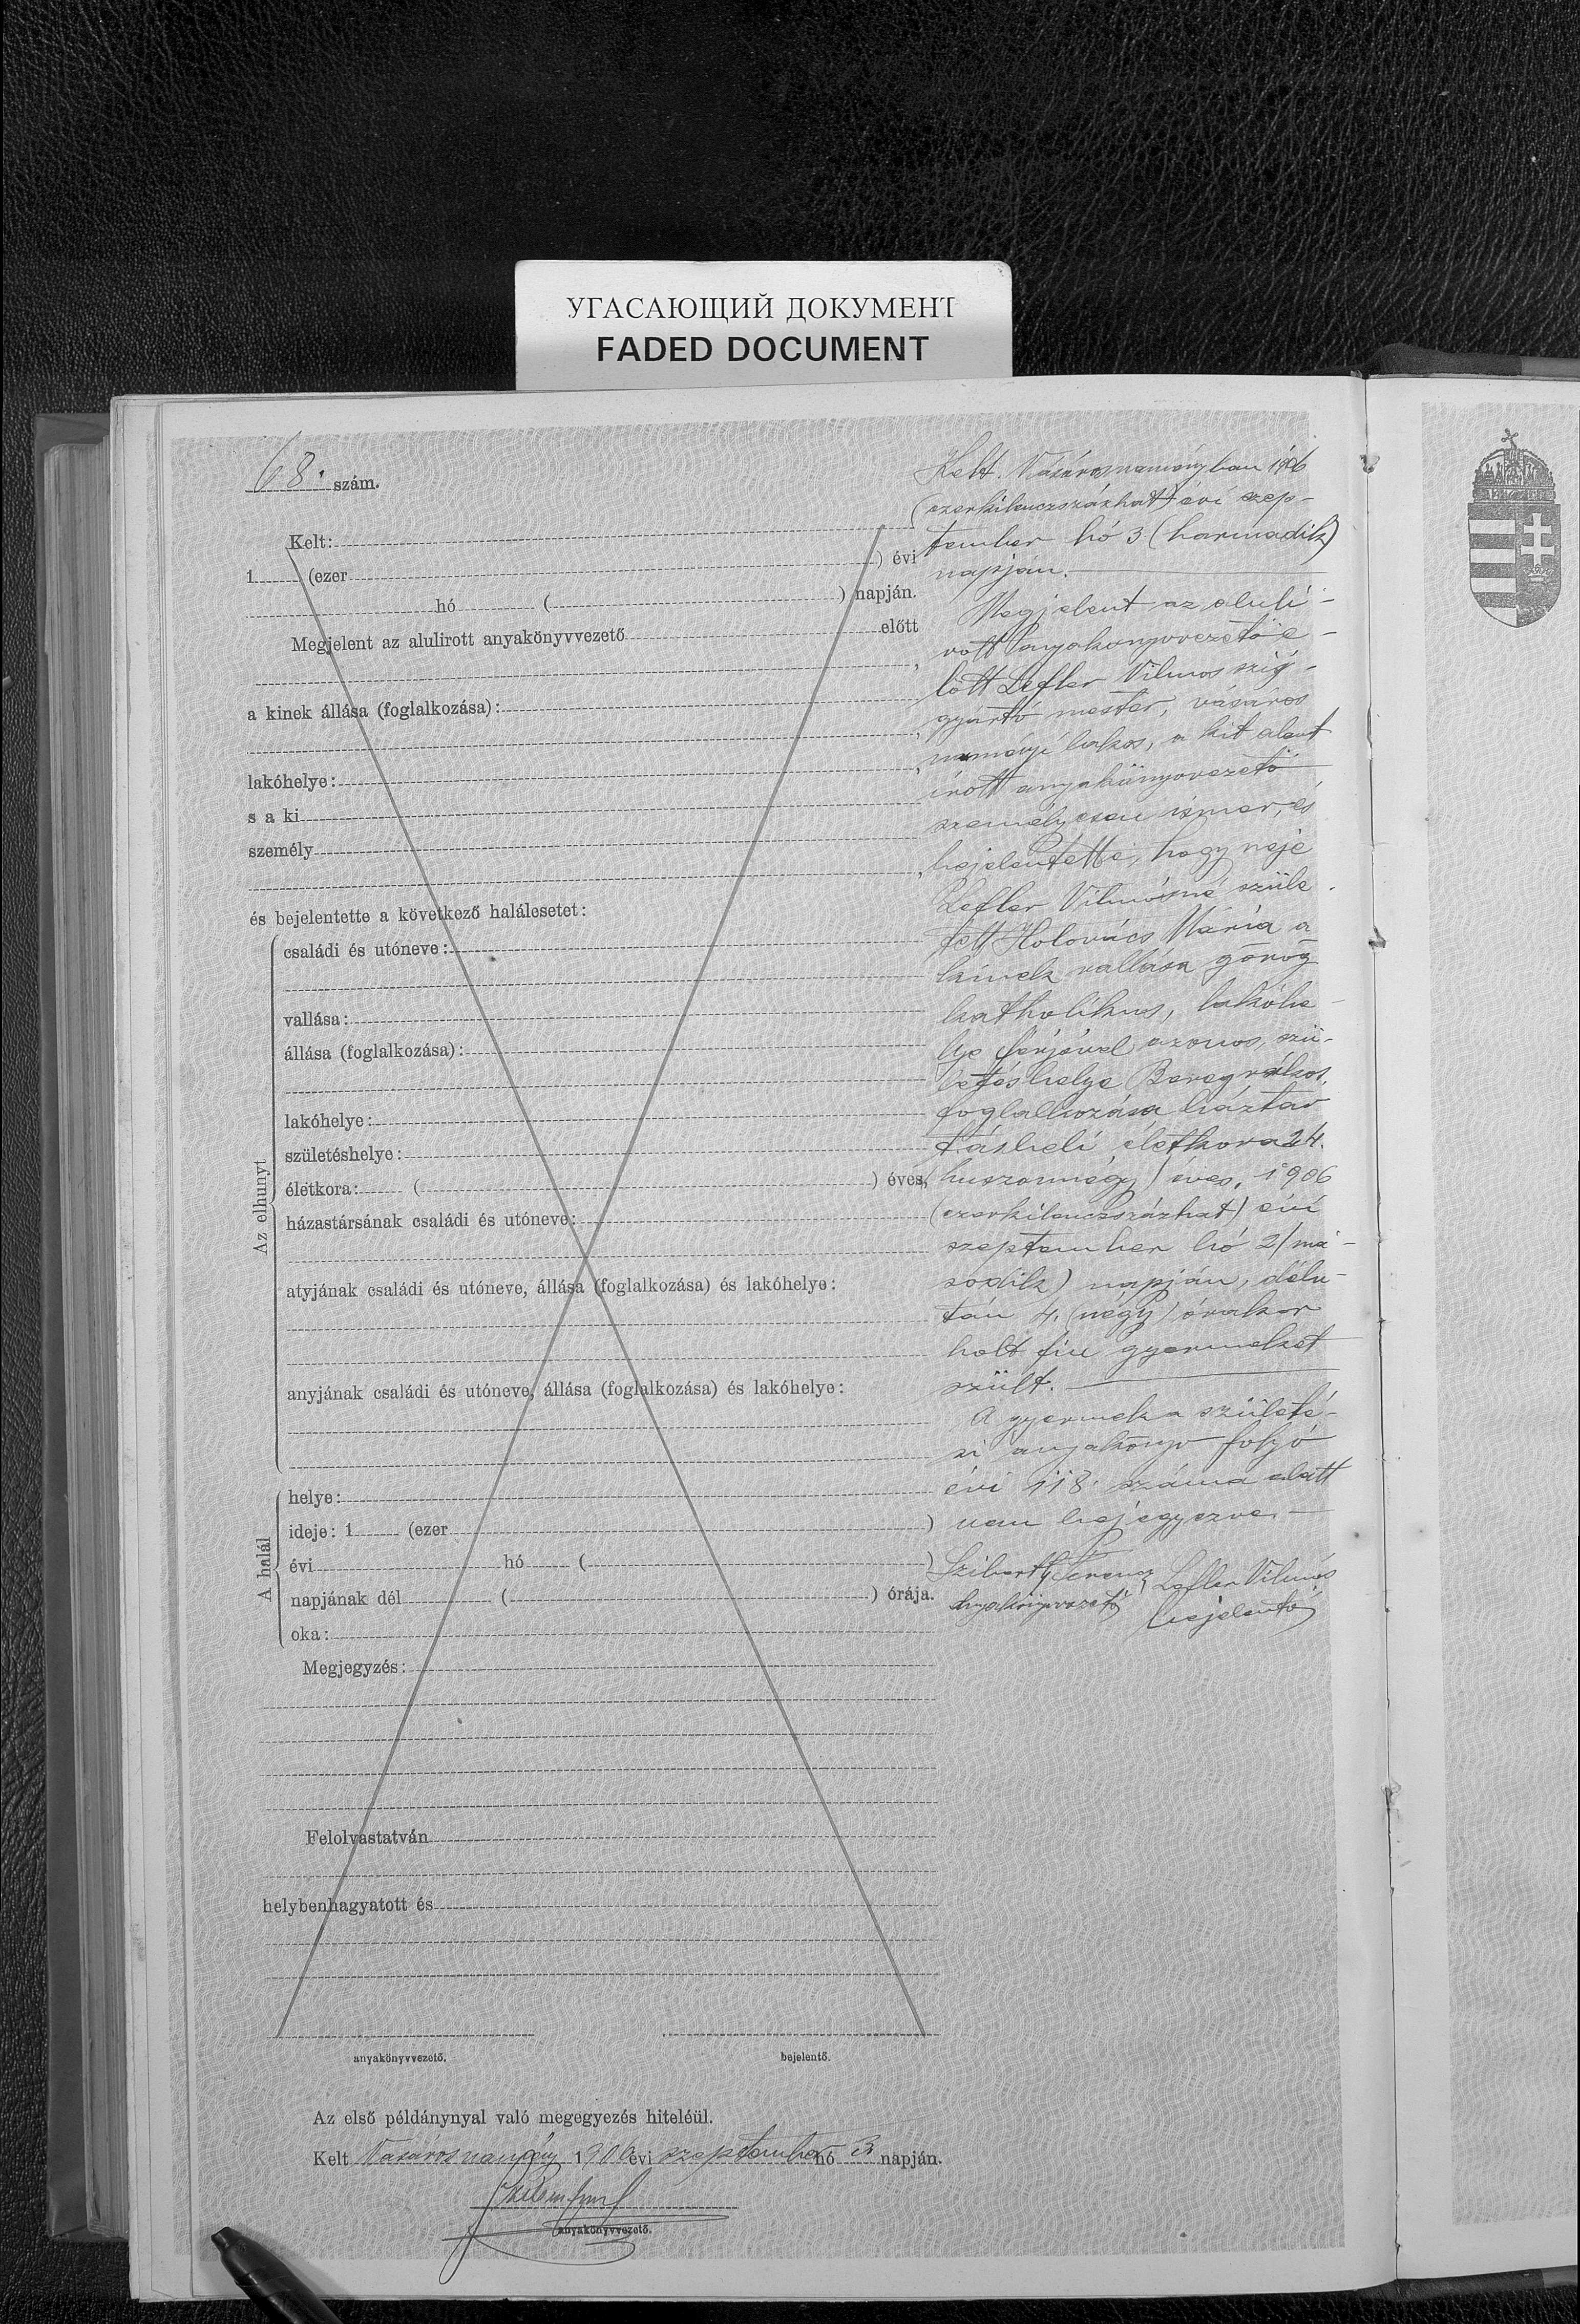 УГАСАЮЩИЙ ДОКУМЕНТ
FADED DOCUMENT
68. szám.
Kelt:
1 (ezer ) évi
hó ( ) napján.
Megjelent az alulirott anyakönyvvezető előtt
a kinek állása (foglalkozása):
lakóhelye:
s a ki
személy
és bejelentette a következő halálesetet:
Az elhunyt
családi és utóneve:
vallása:
állása (foglalkozása):
lakóhelye:
születéshelye:
életkora: ( ) éves,
házastársának családi és utóneve:
atyjának családi és utóneve, állása (foglalkozása) és lakóhelye:
anyjának családi és utóneve, állása (foglalkozása) és lakóhelye:
A halál
helye:
ideje: 1 (ezer )
évi hó ( )
napjának dél ( ) órája.
oka:
Megjegyzés:
Felolvastatván
helybenhagyatott és
anyakönyvvezető. bejelentő.
Kelt. Vásárosnaményban 1906
(ezerkilenczszázhat) évi szep-
tember hó 3 (harmadik)
napján.
Megjelent az aluli-
rott anyakönyvvezető e-
lőtt Lefler Vilmos szíj-
gyártó mester, vásáros
naményi lakos, a kit alant
írott anyakönyvvezető
személyesen ismer, és
bejelentette, hogy neje
Lefler Vilmosné szüle
tett Holovács Mária a
kinek vallása görög
katholikus, lakóhe-
lye férjével azonos, szü-
letéshelye Beregrákos,
foglalkozása háztar
tásbeli, életkora 24.
(huszonnégy) éves, 1906
(ezerkilenczszázhat) évi
szeptember hó 2 (má-
sodik) napján, délu-
tan 4. (négy) órakor
holt fiu gyermeket
szült.
A gyermek a születé-
si anyakönyv folyó
évi 118. száma alatt
van bejegyezve.
Ferencz Lefler Vilmos
anyakönyvvezető bejelentő
Az első példánynyal való megegyezés hiteléül.
Kelt Vásárosnamény 1906 évi szeptember hó 3 napján.
anyakönyvvezető.